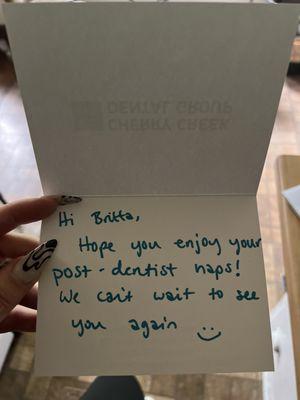 DENTAL GROUP
CHERRY CREEK
Hi Britta,
Hope you enjoy your
post-dentist naps!
We can't wait to see
you again :)